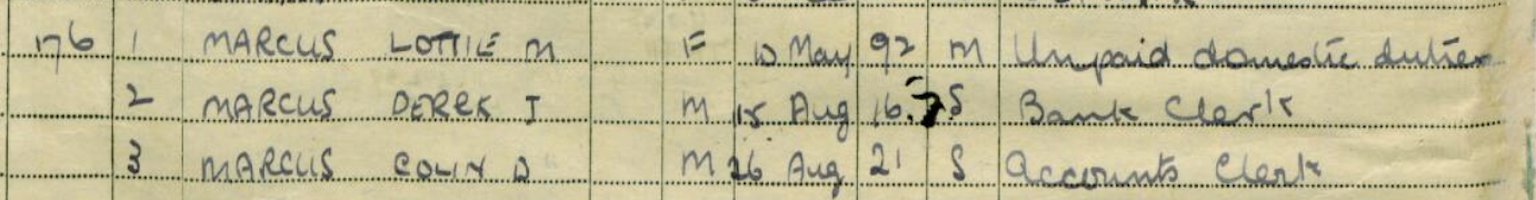 176 1 MARCUS LOTTIE M F 10 May 92 M Unpaid domestic duties
2 MARCUS DEREK J M 15 Aug 16 S Bank Clerk
3 MARCUS COLIN D M 26 Aug 21 S Accounts Clerk